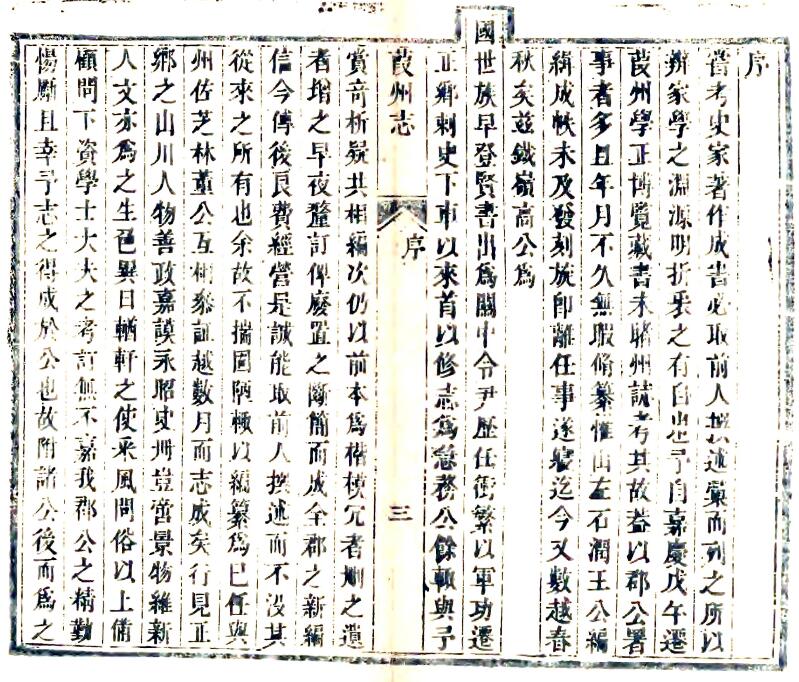 序
嘗考史家著作成書必取前人撰述彙而列之所以
辨家學之淵源明折衷之有自也予自嘉慶戊午遷
葭州學正博覽藏書未睹州誌考其故葢以郡公署
事者多且年月不久無暇脩纂惟山左石潤王公編
緝成帙未及發刻旋卽離任事遂寢迄今又數越春
秋矣玆鐵嶺高公爲
國世族早登賢書出爲關中令尹歷任衝繁以軍功遷
正鄉刺史下車以來首以修志爲急務公餘輙與予
葭州志
序
三
賞奇析疑共相編次仍以前本爲楷模冗者刪之遺
者增之早夜釐訂俾廢置之斷簡而成全郡之新編
信今傳後良費經營是誠能取前人撰述而不没其
從來之所有也余故不揣固陋輙以編纂爲已任與
州佐芝林董公互相叅証越數月而志成矣行見正
鄉之山川人物善政嘉謨永昭史册豈啻景物維新
人文亦爲之生色異日輶軒之使采風問俗以上備
顧問下資學士大夫之考訂無不嘉我郡公之精勤
惕厲且幸予志之得成於公也故附諸公後而爲之